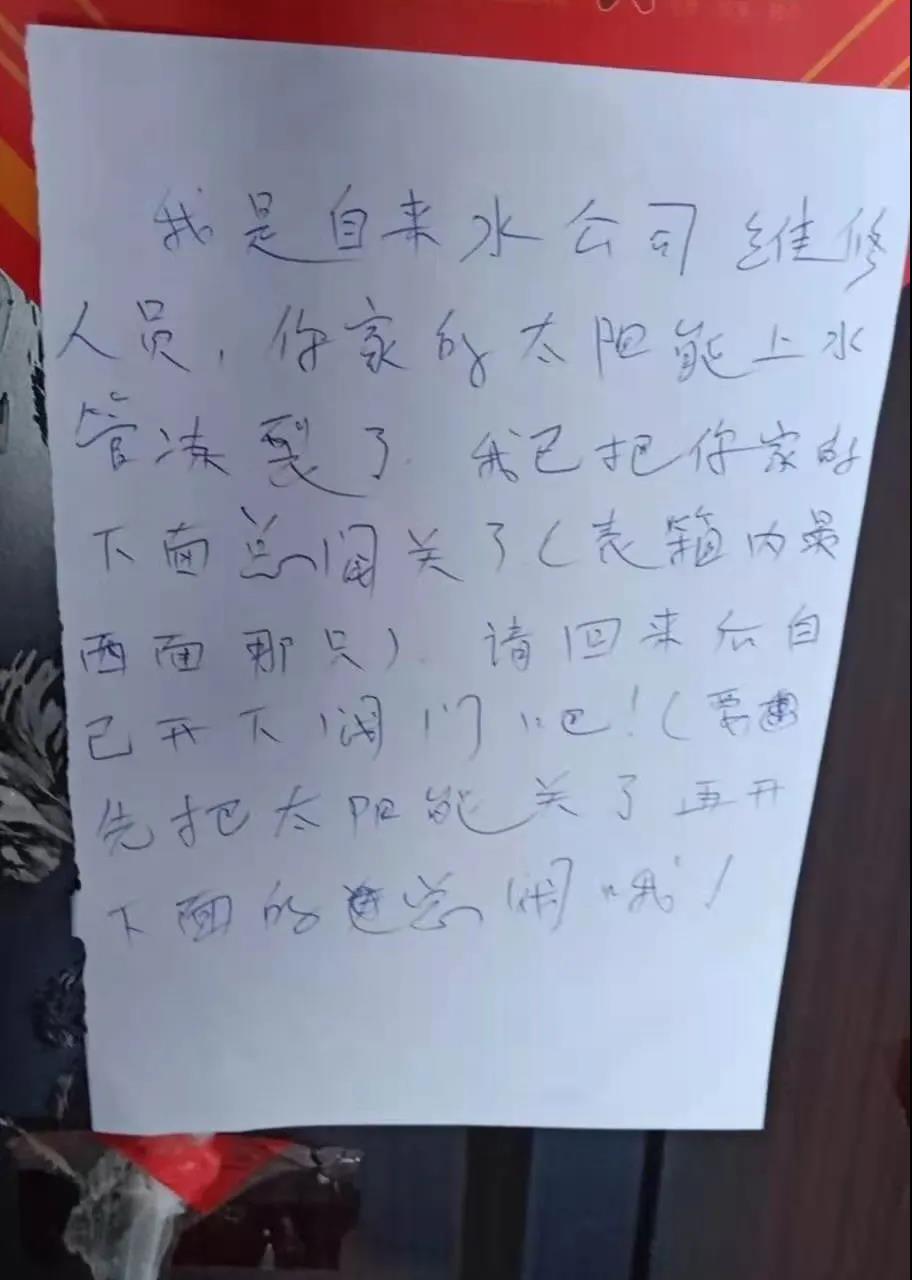 我是自来水公司维修
人员，你家的太阳能上水
管冻裂了．我已把你家的
下面总阀关了（表箱内最
西面那只）．请回来后自
己开下阀门吧！（要
先把太阳能关了再开
下面的总阀哦！